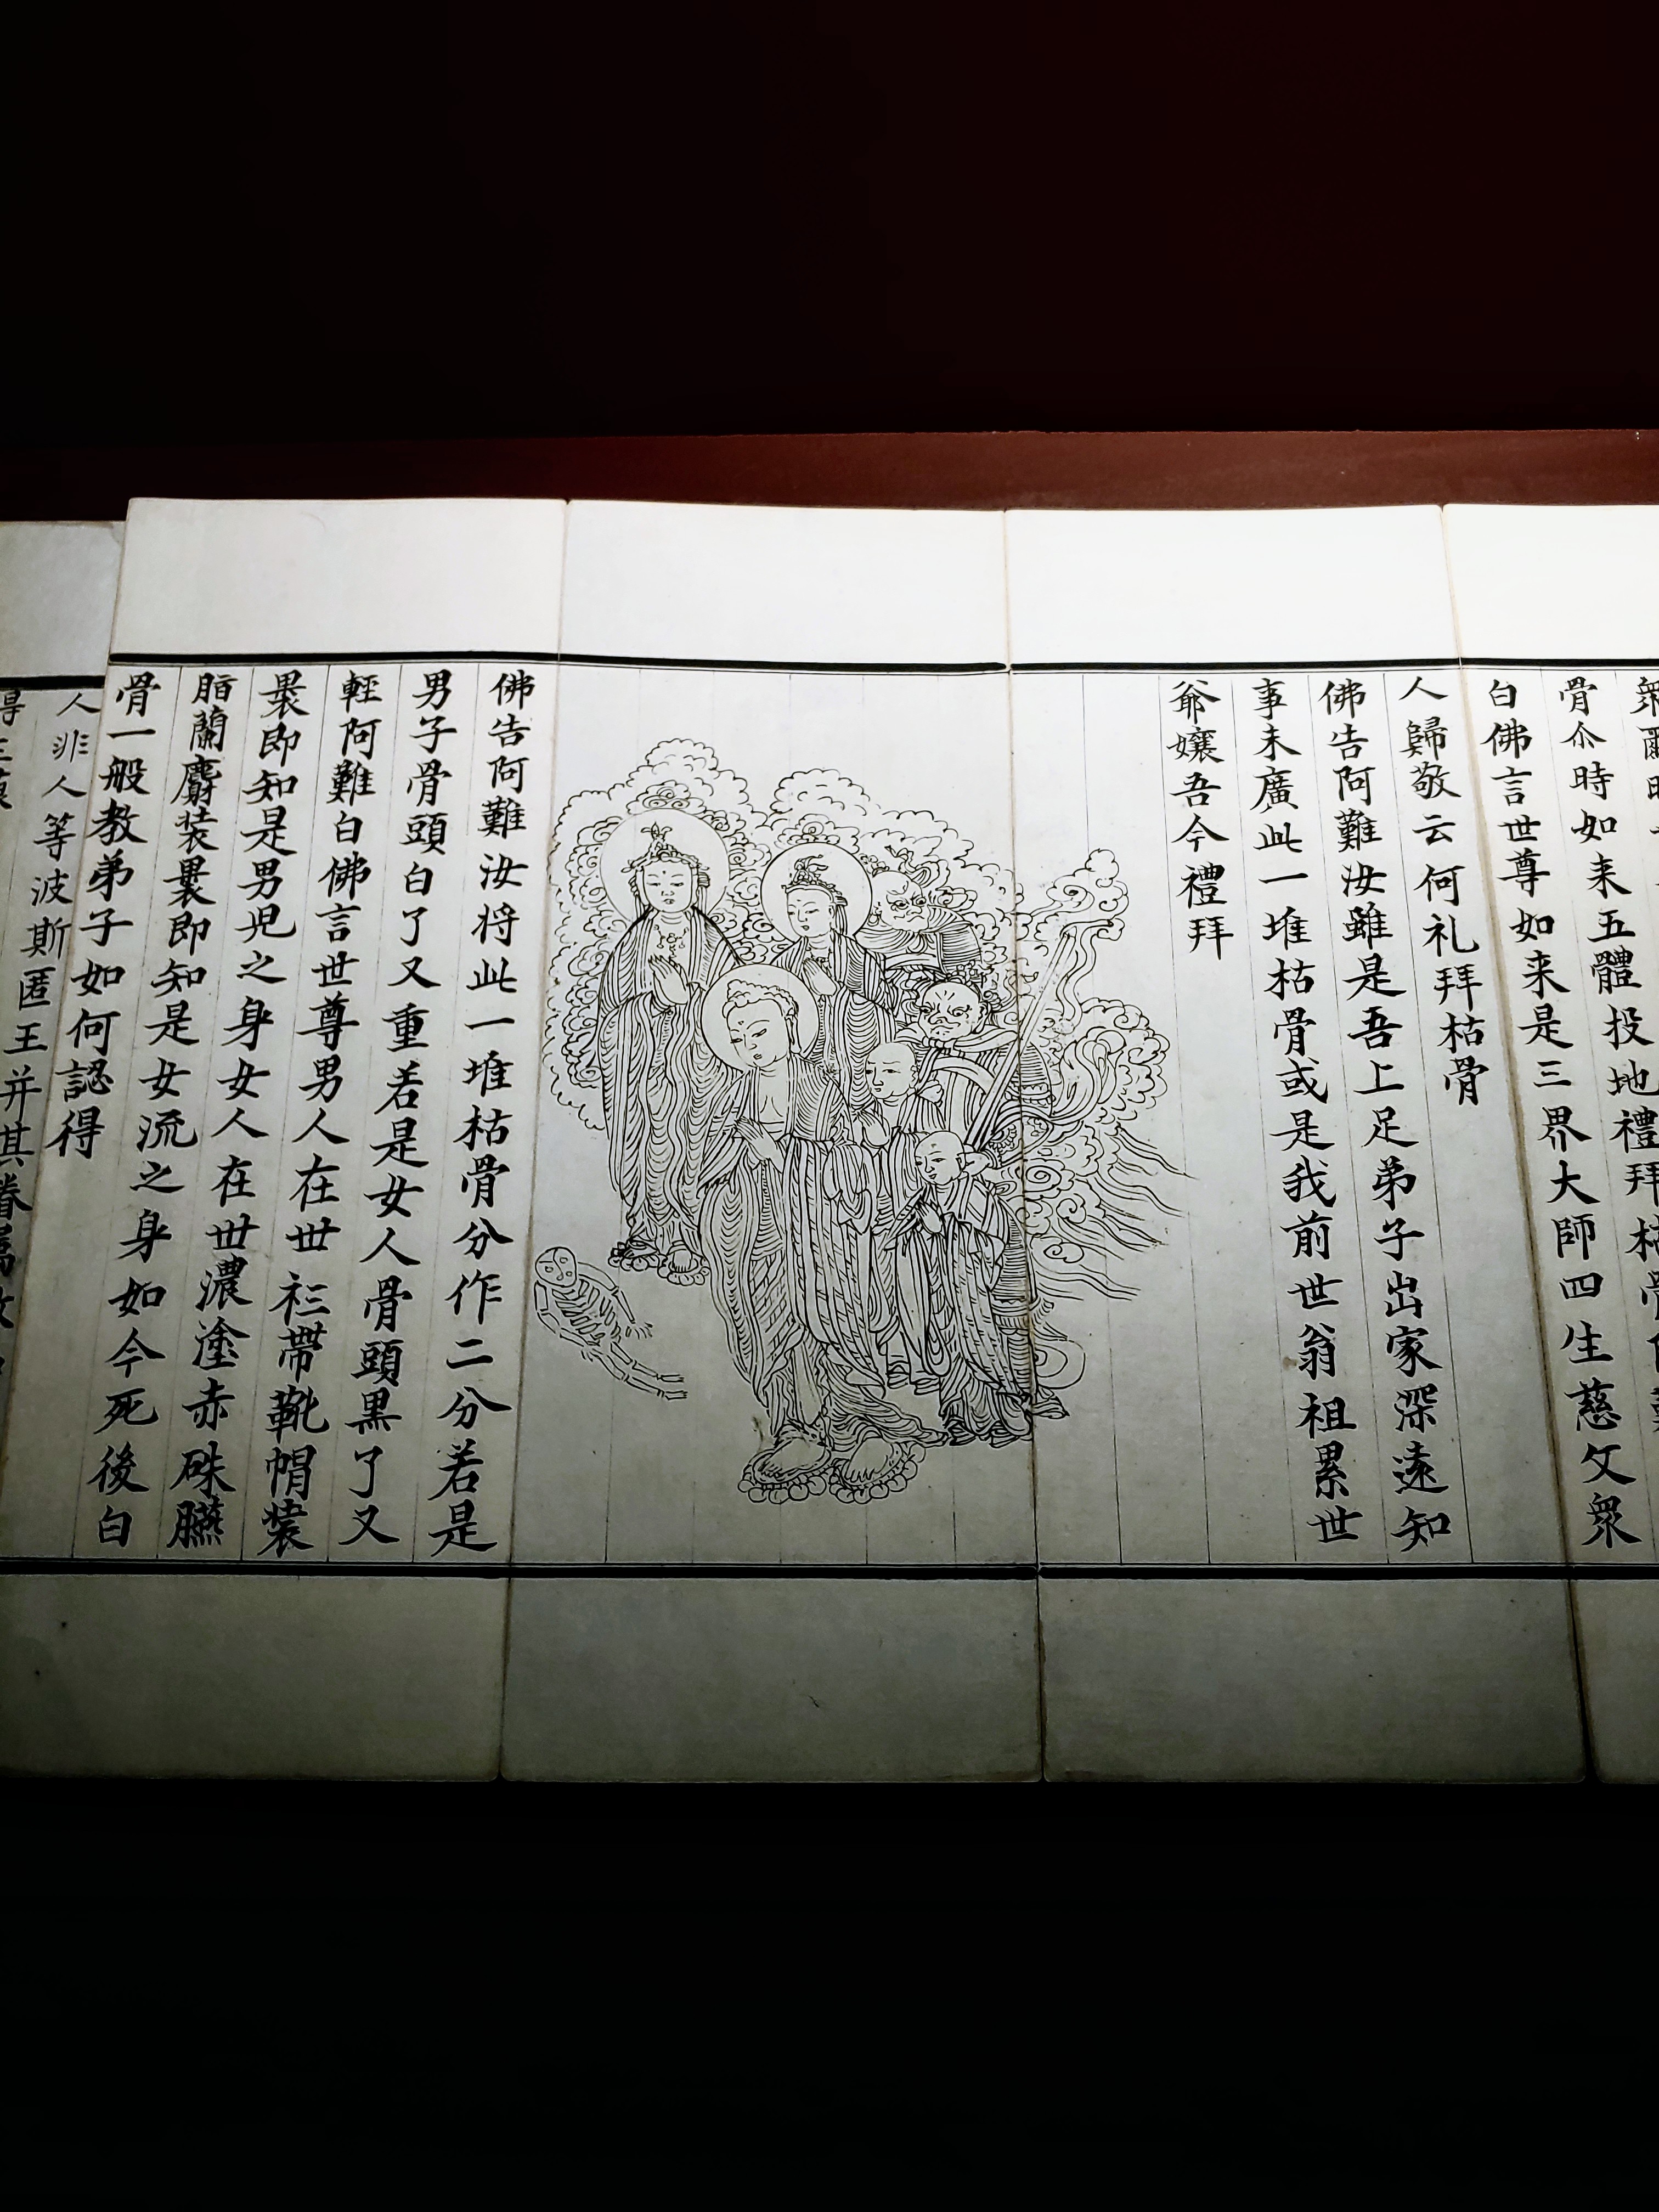 衆爾時
骨尒時如来五體投地禮拜枯骨
白佛言世尊如来是三界大師四生慈父衆
人歸敬云何礼拜枯骨
佛告阿難汝雖是吾上足弟子出家深遠知
事未廣此一堆枯骨或是我前世翁祖累世
爺孃吾今禮拜
佛告阿難汝将此一堆枯骨分作二分若是
男子骨頭白了又重若是女人骨頭黒了又
輕阿難白佛言世尊男人在世衫帶靴帽裝
褁即知是男兒之身女人在世濃塗赤硃臙
脂蘭麝装褁即知是女流之身如今死後白
骨一般教弟子如何認得
人非人等波斯匿王并其眷屬